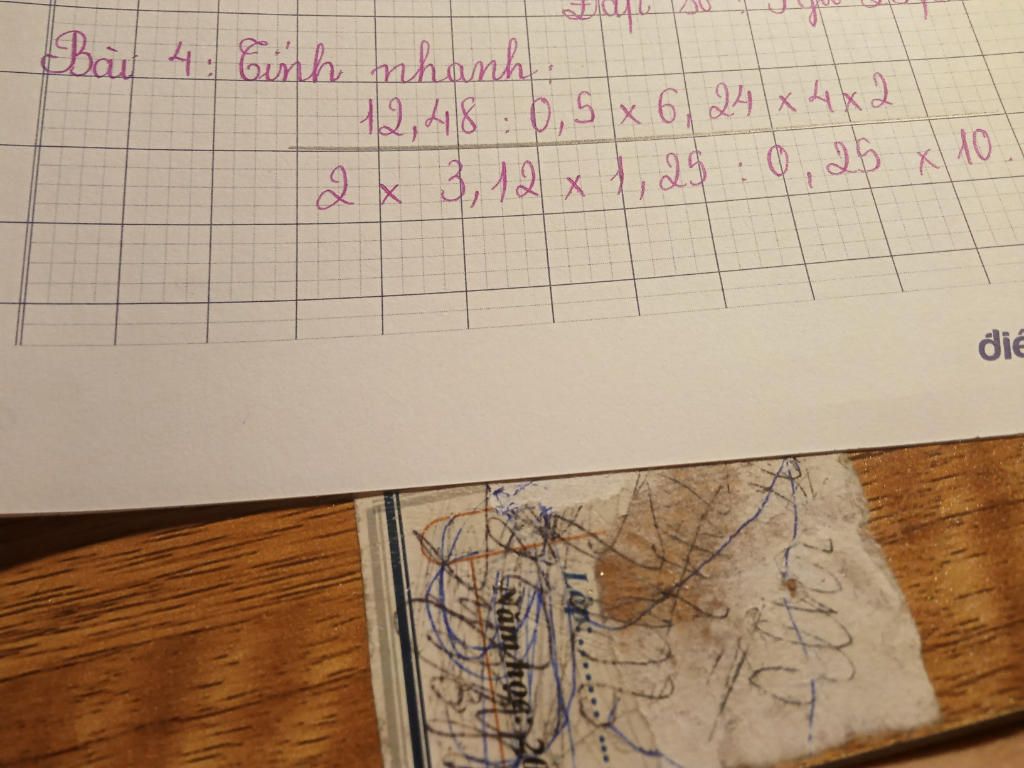 Bài 4: Tính nhanh:
12,48 : 0,5 x 6,24 x 4 x 2
2 x 3,12 x 1,25 : 0,25 x 10.
Lớp:
Năm học: 20